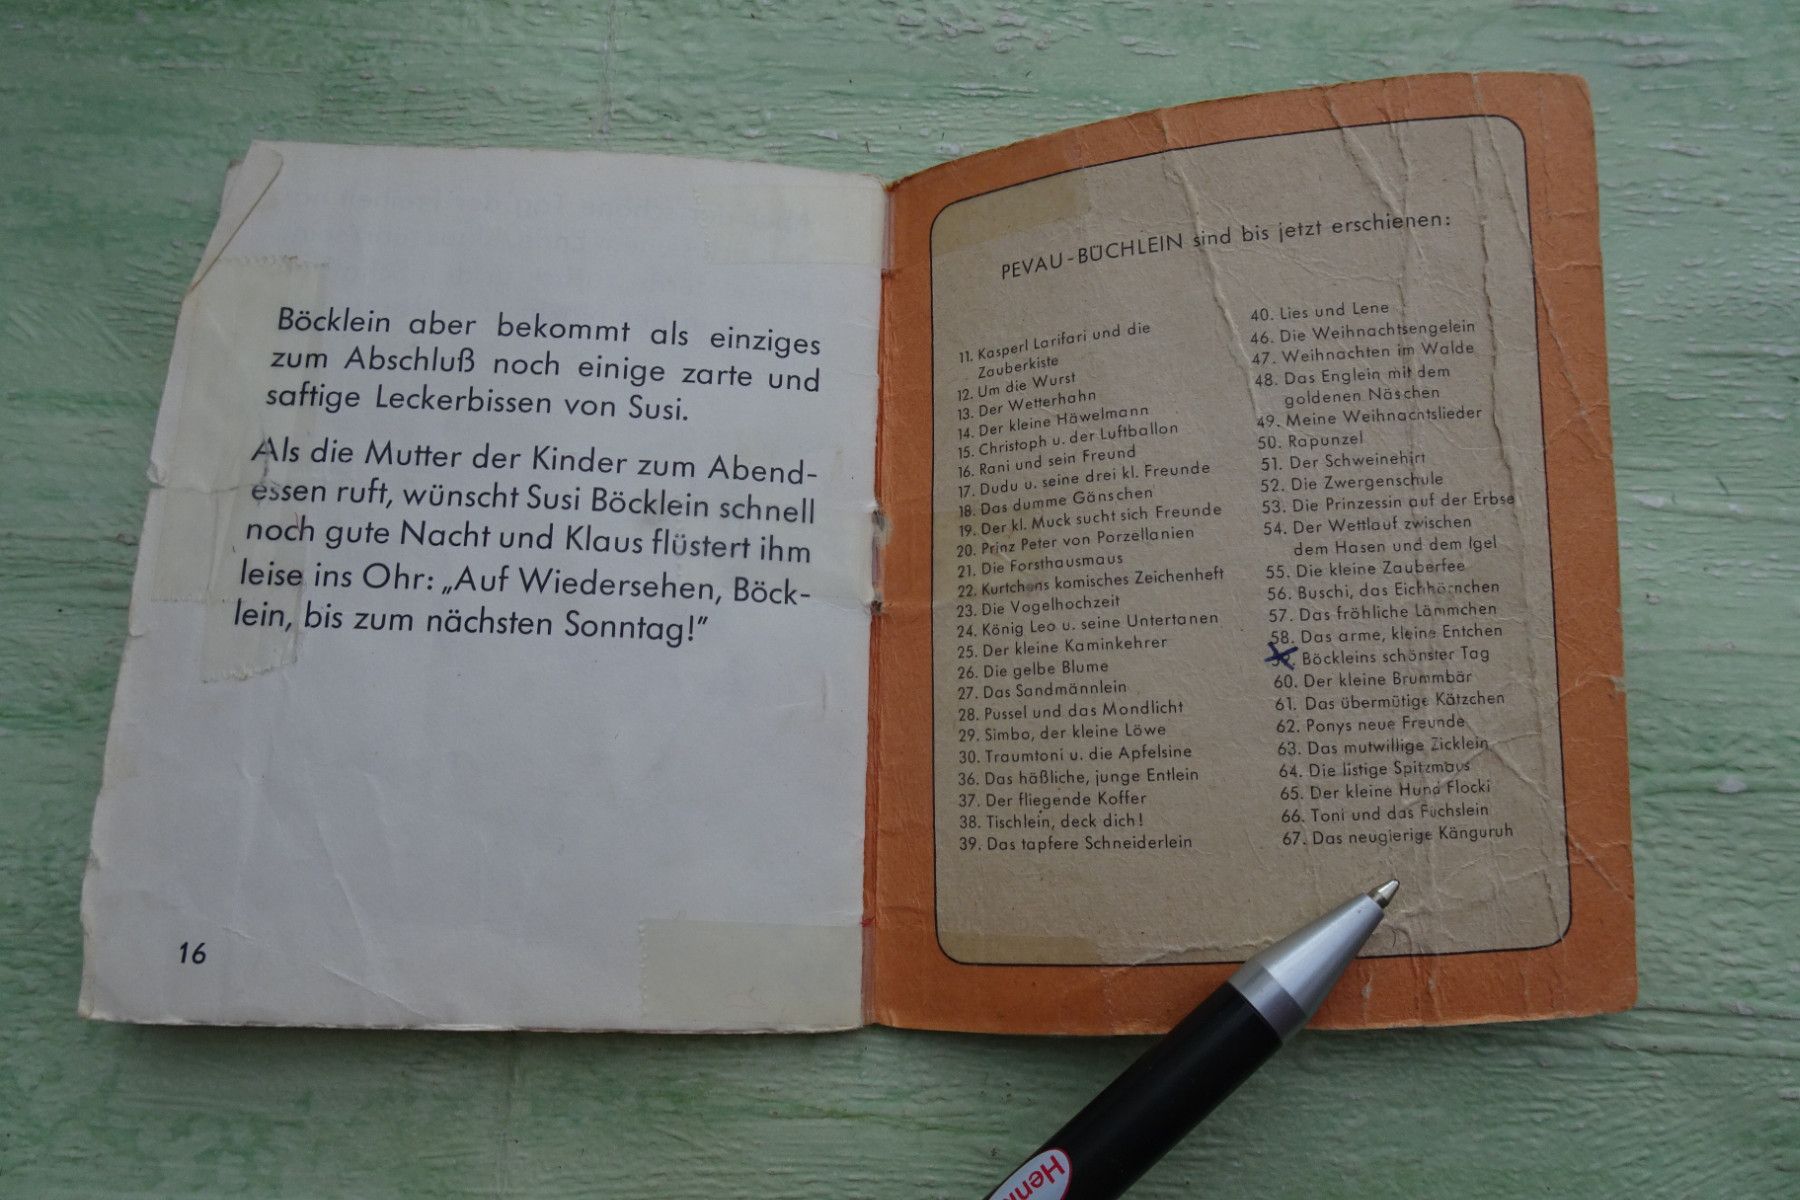 Böcklein aber bekommt als einziges
zum Abschluß noch einige zarte und
saftige Leckerbissen von Susi.
Als die Mutter der Kinder zum Abend-
essen ruft, wünscht Susi Böcklein schnell
noch gute Nacht und Klaus flüstert ihm
leise ins Ohr: „Auf Wiedersehen, Böck-
lein, bis zum nächsten Sonntag!”
16
PEVAU-BÜCHLEIN sind bis jetzt erschienen:
11. Kasperl Larifari und die
Zauberkiste
12. Um die Wurst
13. Der Wetterhahn
14. Der kleine Häwelmann
15. Christoph u. der Luftballon
16. Rani und sein Freund
17. Dudu u. seine drei kl. Freunde
18. Das dumme Gänschen
19. Der kl. Muck sucht sich Freunde
20. Prinz Peter von Porzellanien
21. Die Forsthausmaus
22. Kurtchens komisches Zeichenheft
23. Die Vogelhochzeit
24. König Leo u. seine Untertanen
25. Der kleine Kaminkehrer
26. Die gelbe Blume
27. Das Sandmännlein
28. Pussel und das Mondlicht
29. Simbo, der kleine Löwe
30. Traumtoni u. die Apfelsine
36. Das häßliche, junge Entlein
37. Der fliegende Koffer
38. Tischlein, deck dich!
39. Das tapfere Schneiderlein
40. Lies und Lene
46. Die Weihnachtsengelein
47. Weihnachten im Walde
48. Das Englein mit dem
goldenen Näschen
49. Meine Weihnachtslieder
50. Rapunzel
51. Der Schweinehirt
52. Die Zwergenschule
53. Die Prinzessin auf der Erbse
54. Der Wettlauf zwischen
dem Hasen und dem Igel
55. Die kleine Zauberfee
56. Buschi, das Eichhörnchen
57. Das fröhliche Lämmchen
58. Das arme, kleine Entchen
Böckleins schönster Tag
60. Der kleine Brummbär
61. Das übermütige Kätzchen
62. Ponys neue Freunde
63. Das mutwillige Zicklein
64. Die listige Spitzmaus
65. Der kleine Hund Flocki
66. Toni und das Füchslein
67. Das neugierige Känguruh
Hen